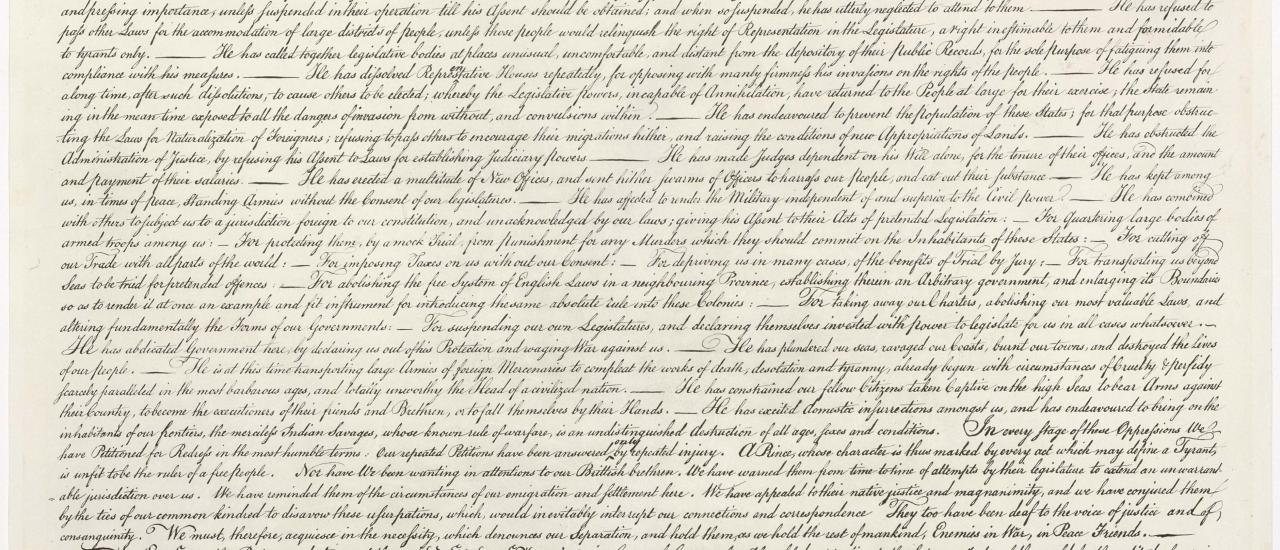 and pressing importance, unless suspended in their operation till his Assent should be obtained; and when so suspended, he has utterly neglected to attend to them. —— He has refused to
pass other Laws for the accommodation of large districts of people, unless those people would relinquish the right of Representation in the Legislature, a right inestimable to them and formidable
to tyrants only. —— He has called together legislative bodies at places unusual, uncomfortable, and distant from the depository of their Public Records, for the sole purpose of fatiguing them into
compliance with his measures. —— He has dissolved Representative Houses repeatedly, for opposing with manly firmness his invasions on the rights of the people. —— He has refused for
a long time, after such dissolutions, to cause others to be elected; whereby the Legislative powers, incapable of Annihilation, have returned to the People at large for their exercise; the State remain
ing in the mean time exposed to all the dangers of invasion from without, and convulsions within. —— He has endeavoured to prevent the population of these States; for that purpose obstruc
ting the Laws for Naturalization of Foreigners; refusing to pass others to encourage their migrations hither, and raising the conditions of new Appropriations of Lands. —— He has obstructed the
Administration of Justice, by refusing his Assent to Laws for establishing Judiciary powers. —— He has made Judges dependent on his Will alone, for the tenure of their offices, and the amount
and payment of their salaries. —— He has erected a multitude of New Offices, and sent hither swarms of Officers to harrass our people, and eat out their substance. —— He has kept among
us, in times of peace, Standing Armies without the Consent of our legislatures. —— He has affected to render the Military independent of and superior to the Civil power. —— He has combined
with others to subject us to a jurisdiction foreign to our constitution, and unacknowledged by our laws; giving his Assent to their Acts of pretended Legislation: — For Quartering large bodies of
armed troops among us: — For protecting them, by a mock Trial, from punishment for any Murders which they should commit on the Inhabitants of these States: — For cutting off
our Trade with all parts of the world: — For imposing Taxes on us without our Consent: — For depriving us in many cases, of the benefits of Trial by Jury: — For transporting us beyond
Seas to be tried for pretended offences: — For abolishing the free System of English Laws in a neighbouring Province, establishing therein an Arbitrary government, and enlarging its Boundaries
so as to render it at once an example and fit instrument for introducing the same absolute rule into these Colonies: — For taking away our Charters, abolishing our most valuable Laws, and
altering fundamentally the Forms of our Governments: — For suspending our own Legislatures, and declaring themselves invested with power to legislate for us in all cases whatsoever. —
He has abdicated Government here, by declaring us out of his Protection and waging War against us. —— He has plundered our seas, ravaged our Coasts, burnt our towns, and destroyed the lives
of our people. —— He is at this time transporting large Armies of foreign Mercenaries to compleat the works of death, desolation and tyranny, already begun with circumstances of Cruelty & perfidy
scarcely paralleled in the most barbarous ages, and totally unworthy the Head of a civilized nation. —— He has constrained our fellow Citizens taken Captive on the high Seas to bear Arms against
their Country, to become the executioners of their friends and Brethren, or to fall themselves by their Hands. — He has excited domestic insurrections amongst us, and has endeavoured to bring on the
inhabitants of our frontiers, the merciless Indian Savages, whose known rule of warfare, is an undistinguished destruction of all ages, sexes and conditions. In every stage of these Oppressions We
have Petitioned for Redress in the most humble terms: Our repeated Petitions have been answered only by repeated injury. A Prince, whose character is thus marked by every act which may define a Tyrant,
is unfit to be the ruler of a free people. Nor have We been wanting in attentions to our Brittish brethren. We have warned them from time to time of attempts by their legislature to extend an unwarrant
able jurisdiction over us. We have reminded them of the circumstances of our emigration and settlement here. We have appealed to their native justice and magnanimity, and we have conjured them
by the ties of our common kindred to disavow these usurpations, which, would inevitably interrupt our connections and correspondence They too have been deaf to the voice of justice and of
consanguinity. We must, therefore, acquiesce in the necessity, which denounces our Separation, and hold them, as we hold the rest of mankind, Enemies in War, in Peace Friends. —